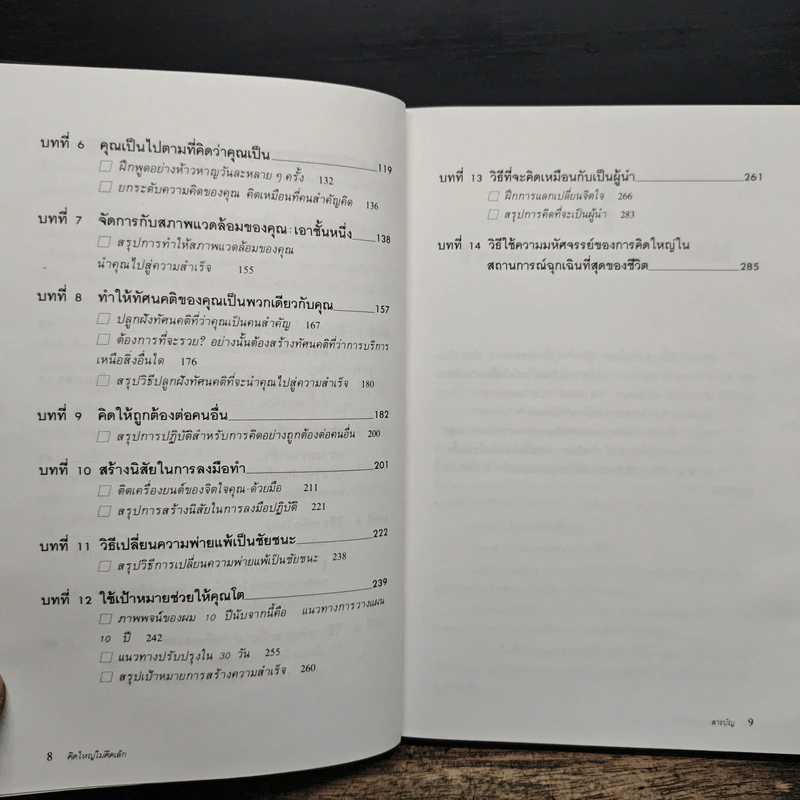 บทที่ 6 คุณเป็นไปตามที่คิดว่าคุณเป็น 119
ฝึกพูดอย่างห้าวหาญวันละหลาย ๆ ครั้ง 132
ยกระดับความคิดของคุณ คิดเหมือนที่คนสำคัญคิด 136
บทที่ 7 จัดการกับสภาพแวดล้อมของคุณ: เอาชั้นหนึ่ง 138
สรุปการทำให้สภาพแวดล้อมของคุณ
นำคุณไปสู่ความสำเร็จ 155
บทที่ 8 ทำให้ทัศนคติของคุณเป็นพวกเดียวกับคุณ 157
ปลูกฝังทัศนคติที่ว่าคุณเป็นคนสำคัญ 167
ต้องการที่จะรวย? อย่างนั้นต้องสร้างทัศนคติที่ว่าการบริการ
เหนือสิ่งอื่นใด 176
สรุปวิธีปลูกฝังทัศนคติที่จะนำคุณไปสู่ความสำเร็จ 180
บทที่ 9 คิดให้ถูกต้องต่อคนอื่น 182
สรุปการปฏิบัติสำหรับการคิดอย่างถูกต้องต่อคนอื่น 200
บทที่ 10 สร้างนิสัยในการลงมือทำ 201
ติดเครื่องยนต์ของจิตใจคุณ-ด้วยมือ 211
สรุปการสร้างนิสัยในการลงมือปฏิบัติ 221
บทที่ 11 วิธีเปลี่ยนความพ่ายแพ้เป็นชัยชนะ 222
สรุปวิธีการเปลี่ยนความพ่ายแพ้เป็นชัยชนะ 238
บทที่ 12 ใช้เป้าหมายช่วยให้คุณโต 239
ภาพพจน์ของผม 10 ปีนับจากนี้คือ แนวทางการวางแผน
10 ปี 242
แนวทางปรับปรุงใน 30 วัน 255
สรุปเป้าหมายการสร้างความสำเร็จ 260
8 คิดใหญ่ไม่คิดเล็ก
บทที่ 13 วิธีที่จะคิดเหมือนกับเป็นผู้นำ 261
ฝึกการแลกเปลี่ยนจิตใจ 266
สรุปการคิดที่จะเป็นผู้นำ 283
บทที่ 14 วิธีใช้ความมหัศจรรย์ของการคิดใหญ่ใน
สถานการณ์ฉุกเฉินที่สุดของชีวิต 285
สารบัญ 9